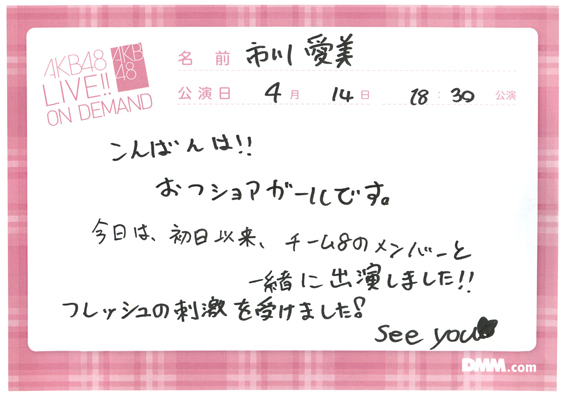 AKB48
LIVE!!
ON DEMAND
AKB
48
名 前 市川 愛美
公演日 4月 14日 18:30 公演
こんばんは!!
おつショアガールです。
今日は、初日以来、チーム8のメンバーと
一緒に出演しました!!
フレッシュの刺激を受けました!
see you
DMM.com